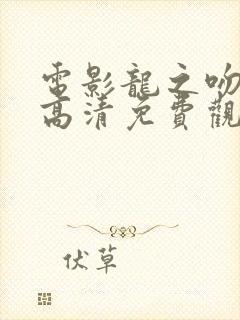 電影龍之吻
高清免費觀
伏草